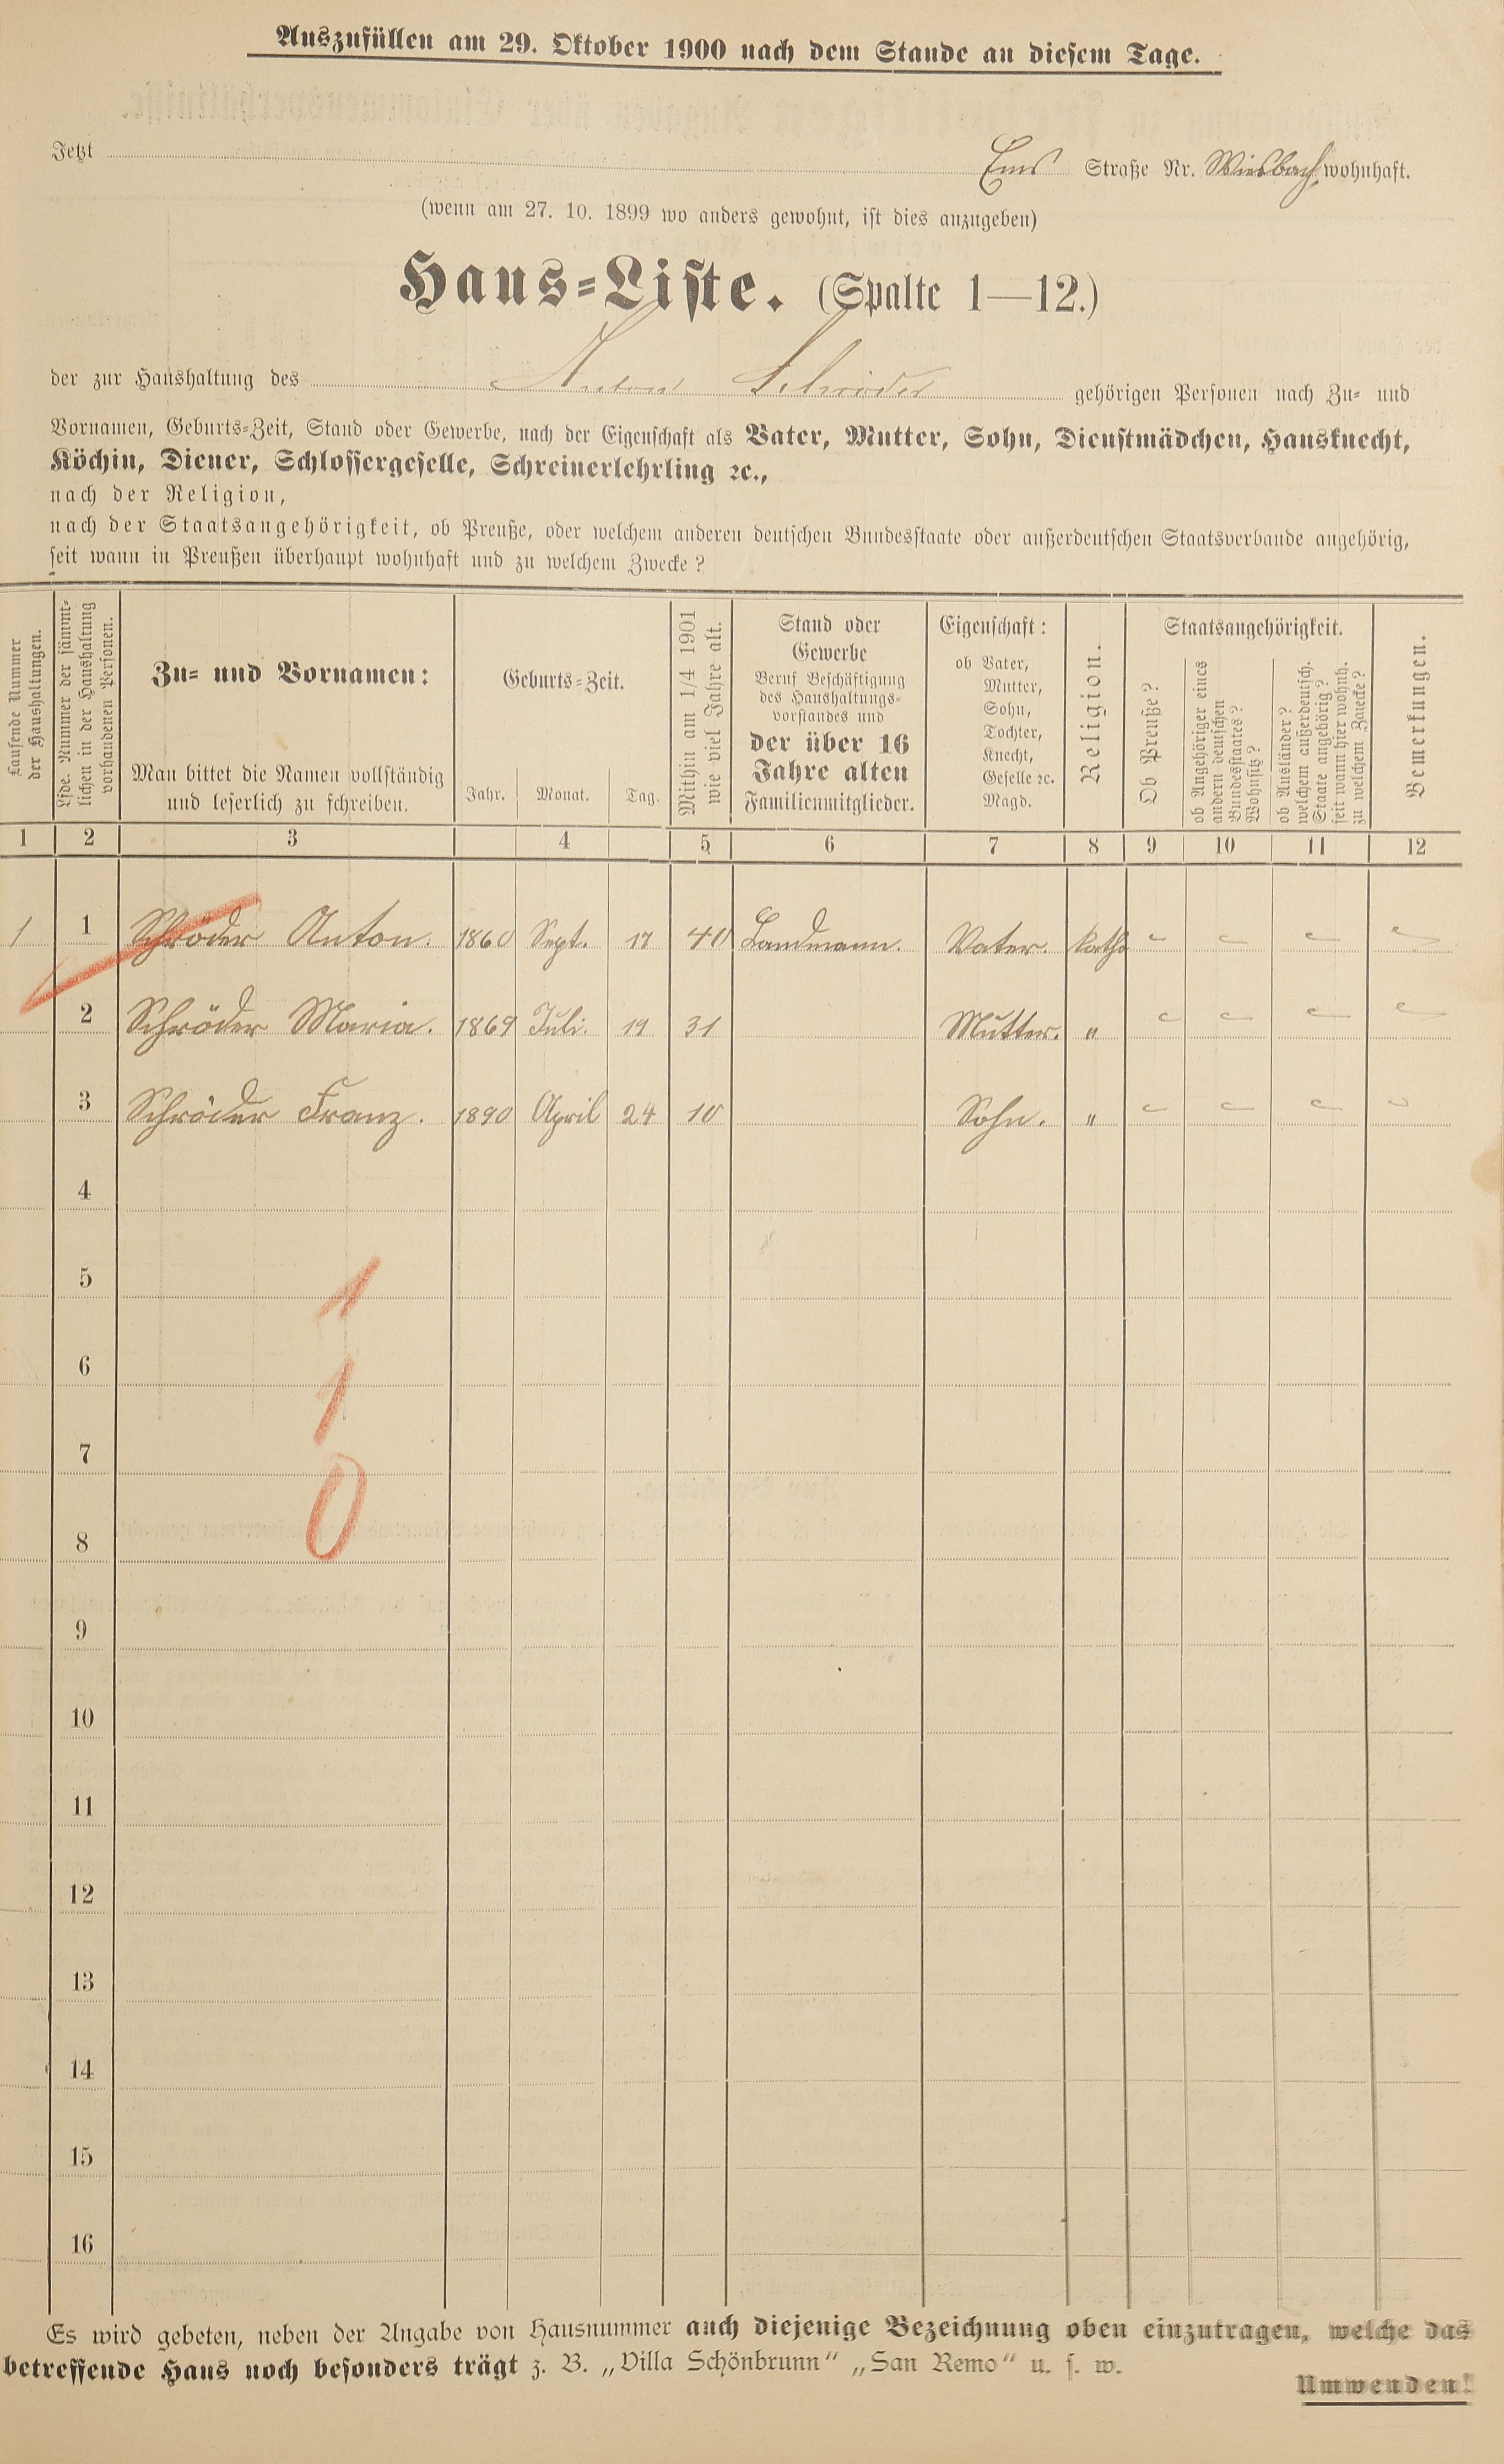 Auszufüllen am 29. Oktober 1900 nach dem Stande an diesem Tage.
Jetzt Ems Straße Nr. Wiesbach wohnhaft.
(wenn am 27. 10. 1899 wo anders gewohnt, ist dies anzugeben)
Haus=Liste. (Spalte 1—12.)
der zur Haushaltung des Anton Schröder gehörigen Personen nach Zu- und
Vornamen, Geburts=Zeit, Stand oder Gewerbe, nach der Eigenschaft als Vater, Mutter, Sohn, Dienstmädchen, Hausknecht,
Köchin, Diener, Schlossergeselle, Schreinerlehrling ꝛc.,
nach der Religion,
nach der Staatsangehörigkeit, ob Preuße, oder welchem anderen deutschen Bundesstaate oder außerdeutschen Staatsverbande angehörig,
seit wann in Preußen überhaupt wohnhaft und zu welchem Zwecke?
Laufende Nummer
der Haushaltungen.
Lfde. Nummer der sämmt-
lichen in der Haushaltung
vorhandenen Personen.
Zu= und Vornamen:
Man bittet die Namen vollständig
und leserlich zu schreiben.
Geburts=Zeit.
Jahr. Monat. Tag.
Mithin am 1/4 1901
wie viel Jahre alt.
Stand oder
Gewerbe
Beruf Beschäftigung
des Haushaltungs-
vorstandes und
der über 16
Jahre alten
Familienmitglieder.
Eigenschaft:
ob Vater,
Mutter,
Sohn,
Tochter,
Knecht,
Geselle ꝛc.
Magd.
Religion.
Staatsangehörigkeit.
Ob Preuße?
ob Angehöriger eines
andern deutschen
Bundesstaates?
Wohnsitz?
ob Ausländer?
welchem außerdeutsch.
Staate angehörig?
seit wann hier wohnh.
zu welchem Zwecke?
Bemerkungen.
1 2 3 4 5 6 7 8 9 10 11 12
1 1 Schröder Anton. 1860 Sept. 17 40 Landmann. Vater. kath.
2 Schröder Maria. 1869 Juli. 19 31 Mutter. "
3 Schröder Franz. 1890 April 24 10 Sohn. "
4
5
1
6
1
7
0
8
9
10
11
12
13
14
15
16
Es wird gebeten, neben der Angabe von Hausnummer auch diejenige Bezeichnung oben einzutragen, welche das
betreffende Haus noch besonders trägt z. B. „Villa Schönbrunn“ „San Remo“ u. s. w.
Umwenden!